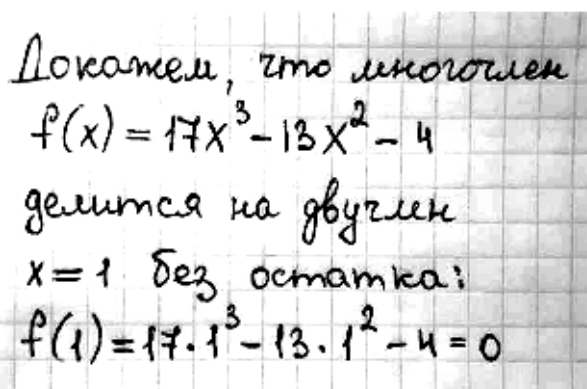 Докажем, что многочлен
f(x) = 17x³ - 13x² - 4
делится на двучлен
x = 1 без остатка:
f(1) = 17 · 1³ - 13 · 1² - 4 = 0